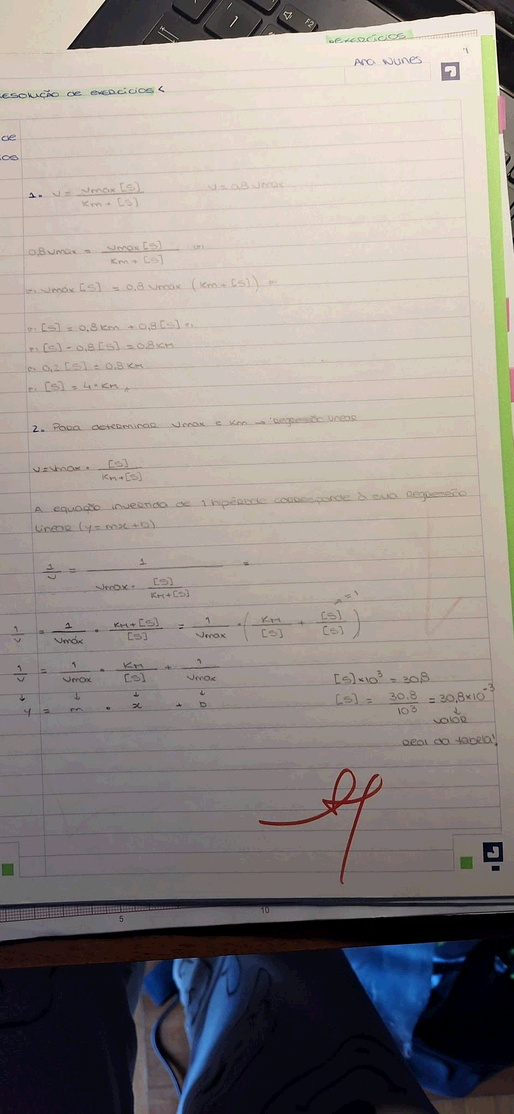 F2
1
EXERCÍCIOS
Ana Nunes
RESOLUÇÃO DE EXERCÍCIOS
1. V = Vmax [S] / Km + [S]    V = 0,8 Vmax
0,8 Vmax = Vmax [S] / Km + [S] (=)
(=) Vmax [S] = 0,8 Vmax (Km + [S]) (=)
(=) [S] = 0,8 Km + 0,8 [S] (=)
(=) [S] - 0,8 [S] = 0,8 Km
(=) 0,2 [S] = 0,8 Km
(=) [S] = 4 · Km
2. Para determinar Vmax e Km → Regressão linear
V = Vmax · [S] / Km + [S]
A equação invertida de 1 hipérbole corresponde à sua Regressão
linear (y = mx + b)
1/V = 1 / Vmax · [S] / Km + [S] =
1/V = 1/Vmax · Km + [S] / [S] = 1/Vmax · ( Km/[S] + [S]/[S] )
1/V = 1/Vmax · Km/[S] + 1/Vmax
↓ ↓ ↓ ↓
y = m · x + b
[S] × 10³ = 30,8
[S] = 30.8 / 10³ = 30,8 × 10⁻³
↓
valor
real da tabela!
5
10